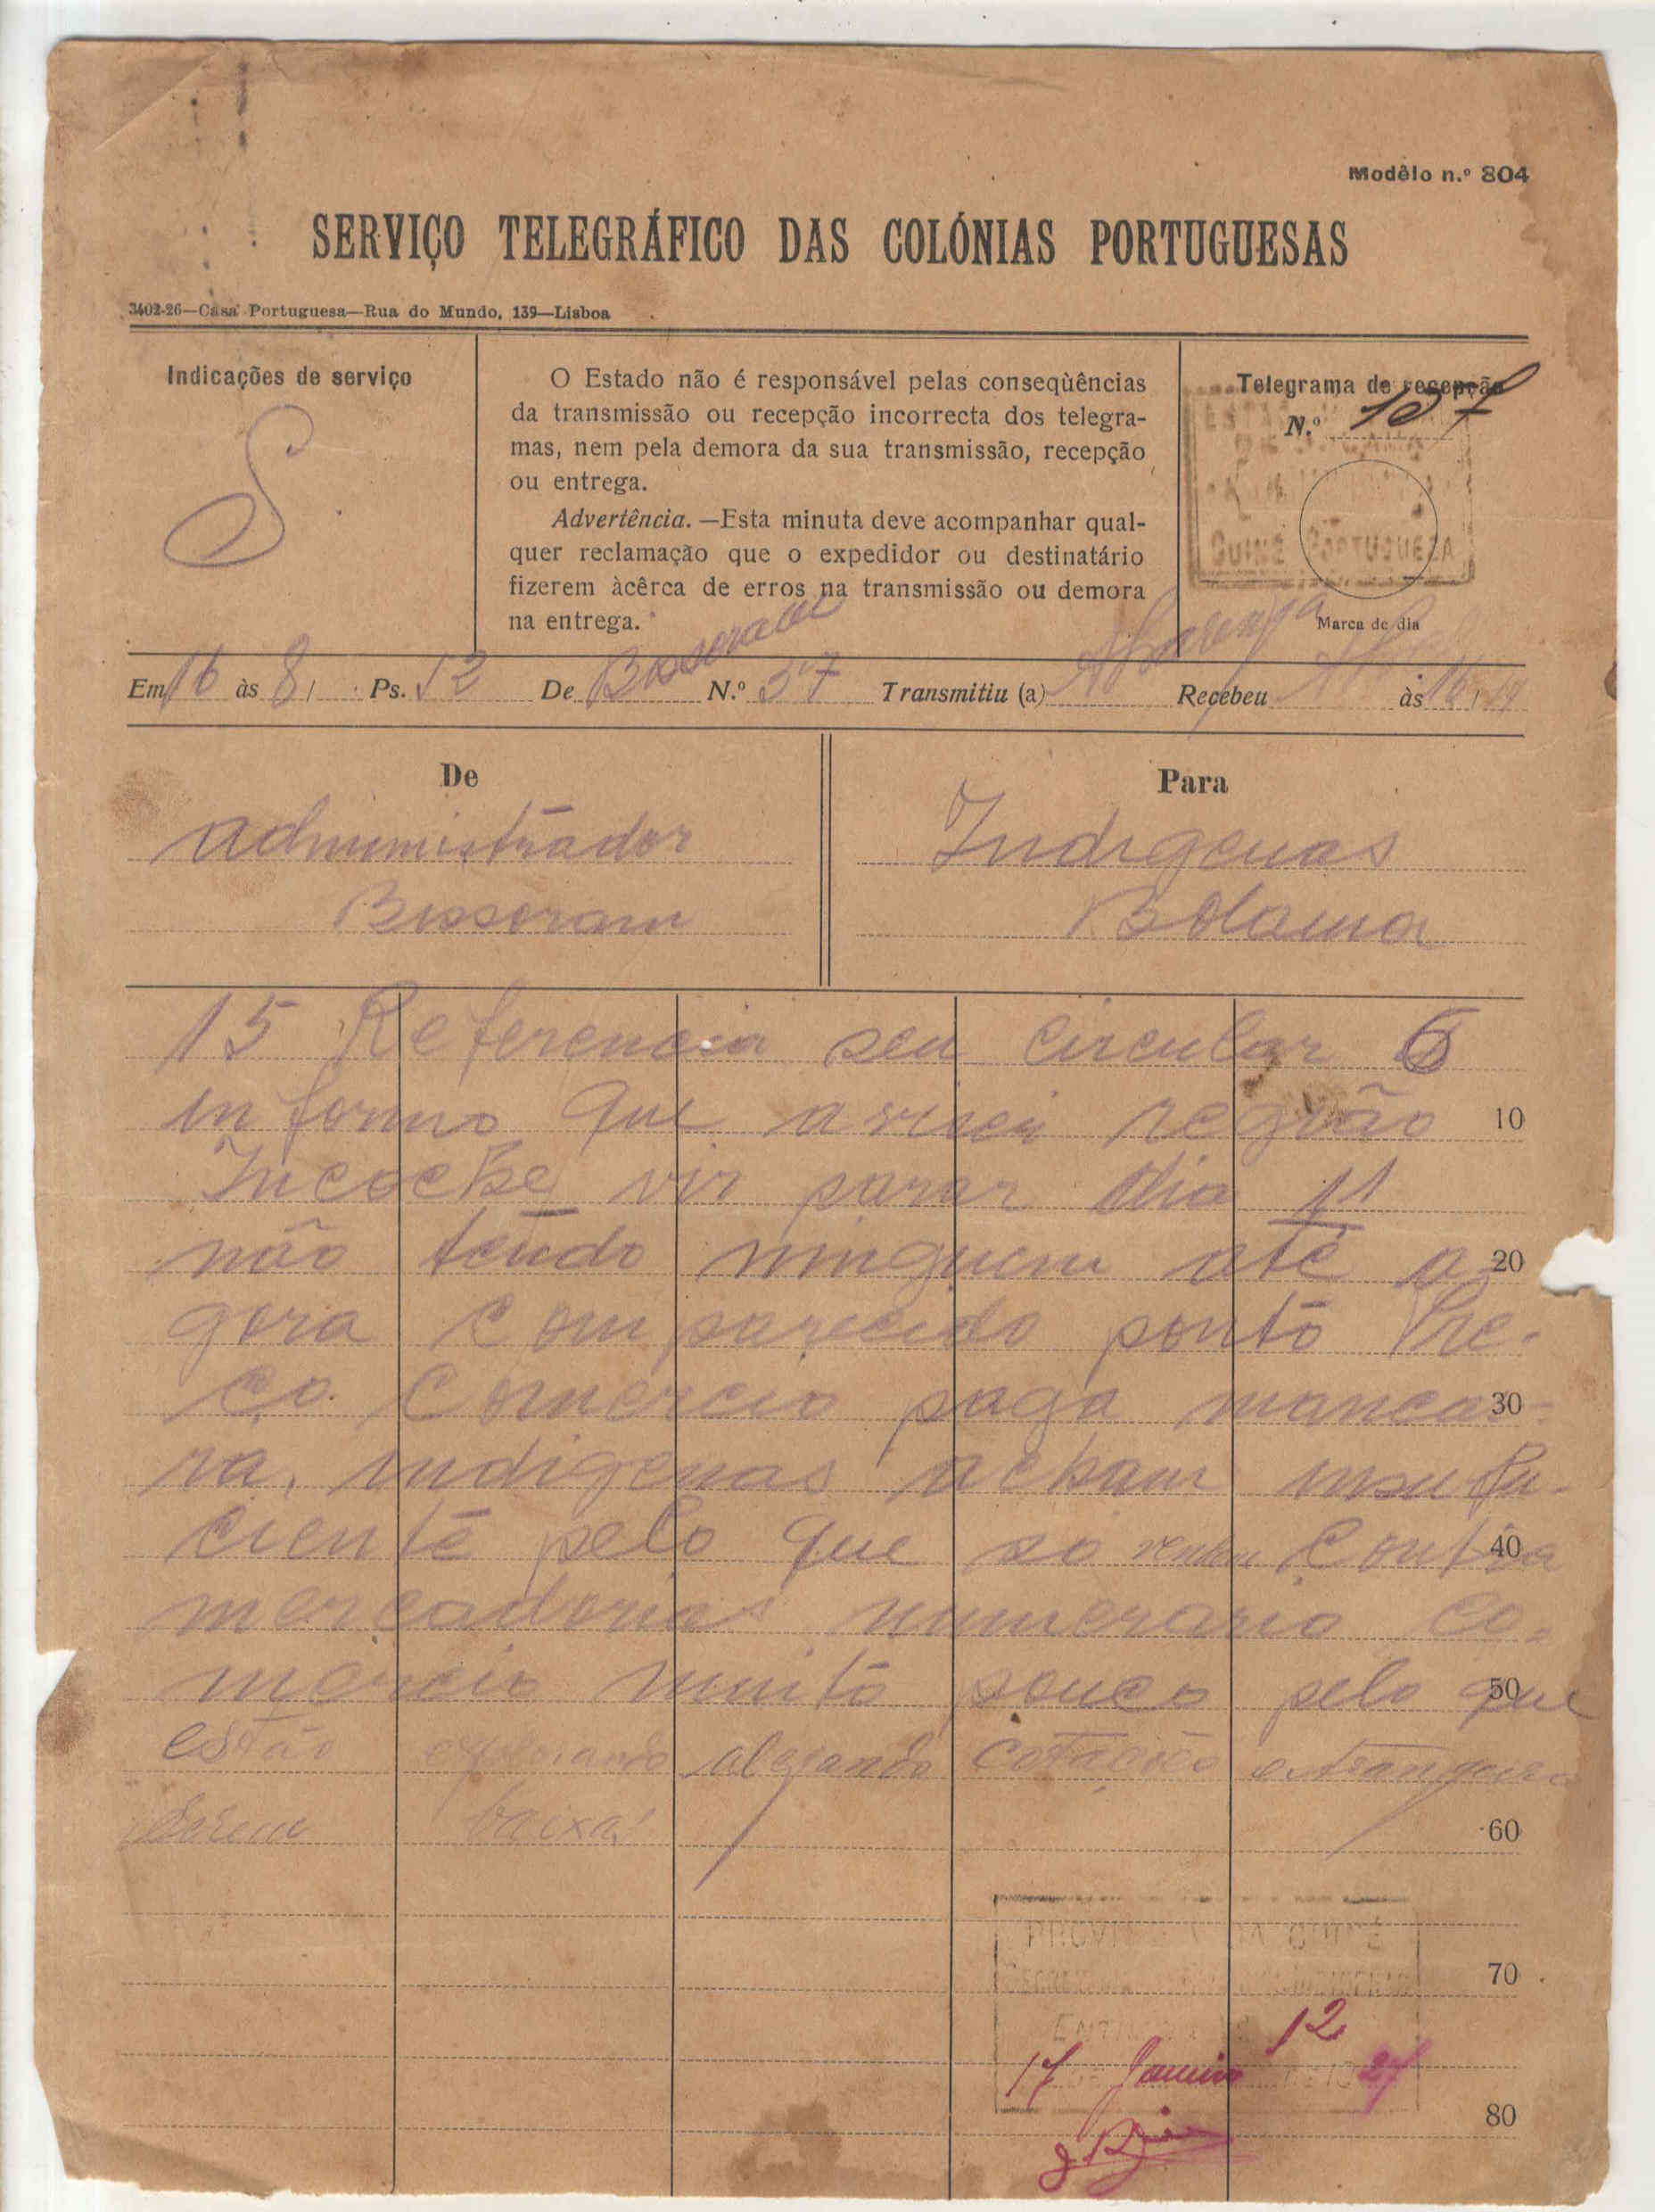 Modêlo n.º 804
SERVIÇO TELEGRÁFICO DAS COLÓNIAS PORTUGUESAS
3402-26—Casa Portuguesa—Rua do Mundo, 139—Lisboa
Indicações de serviço
S
O Estado não é responsável pelas conseqùências
da transmissão ou recepção incorrecta dos telegra-
mas, nem pela demora da sua transmissão, recepção
ou entrega.
Advertência. —Esta minuta deve acompanhar qual-
quer reclamação que o expedidor ou destinatário
fizerem àcêrca de erros na transmissão ou demora
na entrega.
Telegrama de recepção
N.º 107
GUINÉ PORTUGUEZA
Marca de dia
Em 16 às 8 / Ps. 52 De Bissoram N.º 37 Transmitiu (a) Recebeu às 16 / 19
De
Administrador
Bissoram
Para
Indigenas
Bolama
15 Referencia seu circular 6
informo que avisei região 10
Incoche vir parar dia 11
não tendo ninguem até a 20
gora comparecido ponto Pre-
ço. Comercio paga manca- 30
ra, indigenas acham insufi-
ciente pelo que so vendem contra 40
mercadorias numerario co-
mercio muito pouco pelo que 50
estão explorando alegando cotações estrangeira
serem baixa! 60
70
PROVINCIA DA GUINÉ
12
17 Janeiro 27
80